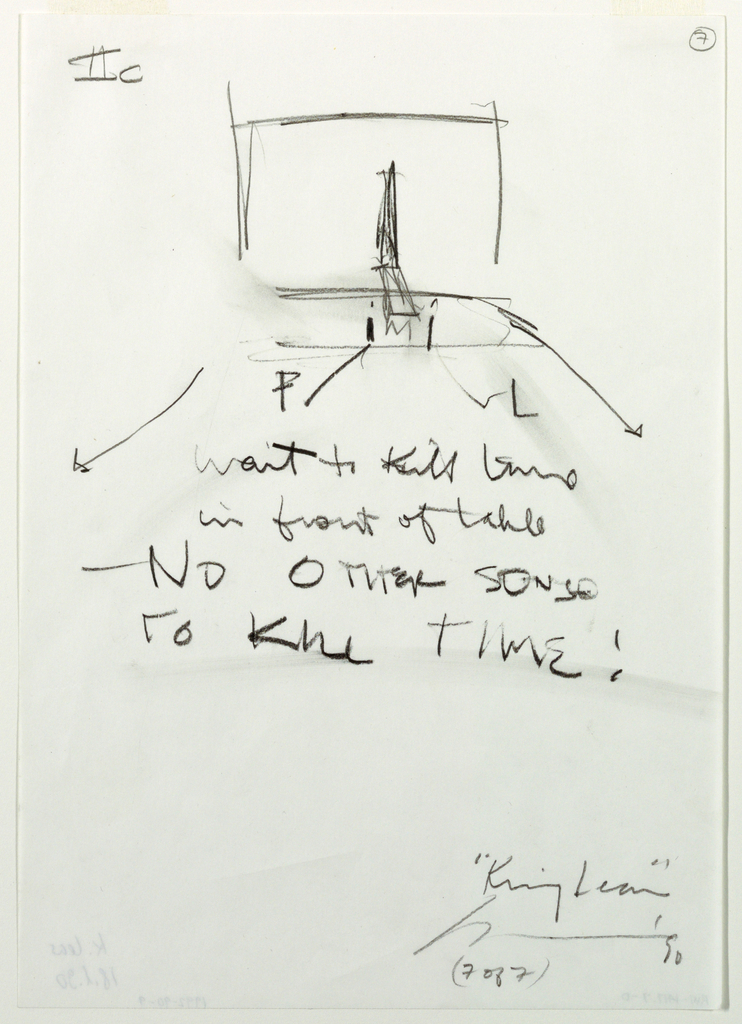 IIc
7
M
P
L
want to kill time
in front of table
— NO OTHER SENSE
TO KILL TIME!
"King Lear"
'90
(7 of 7)